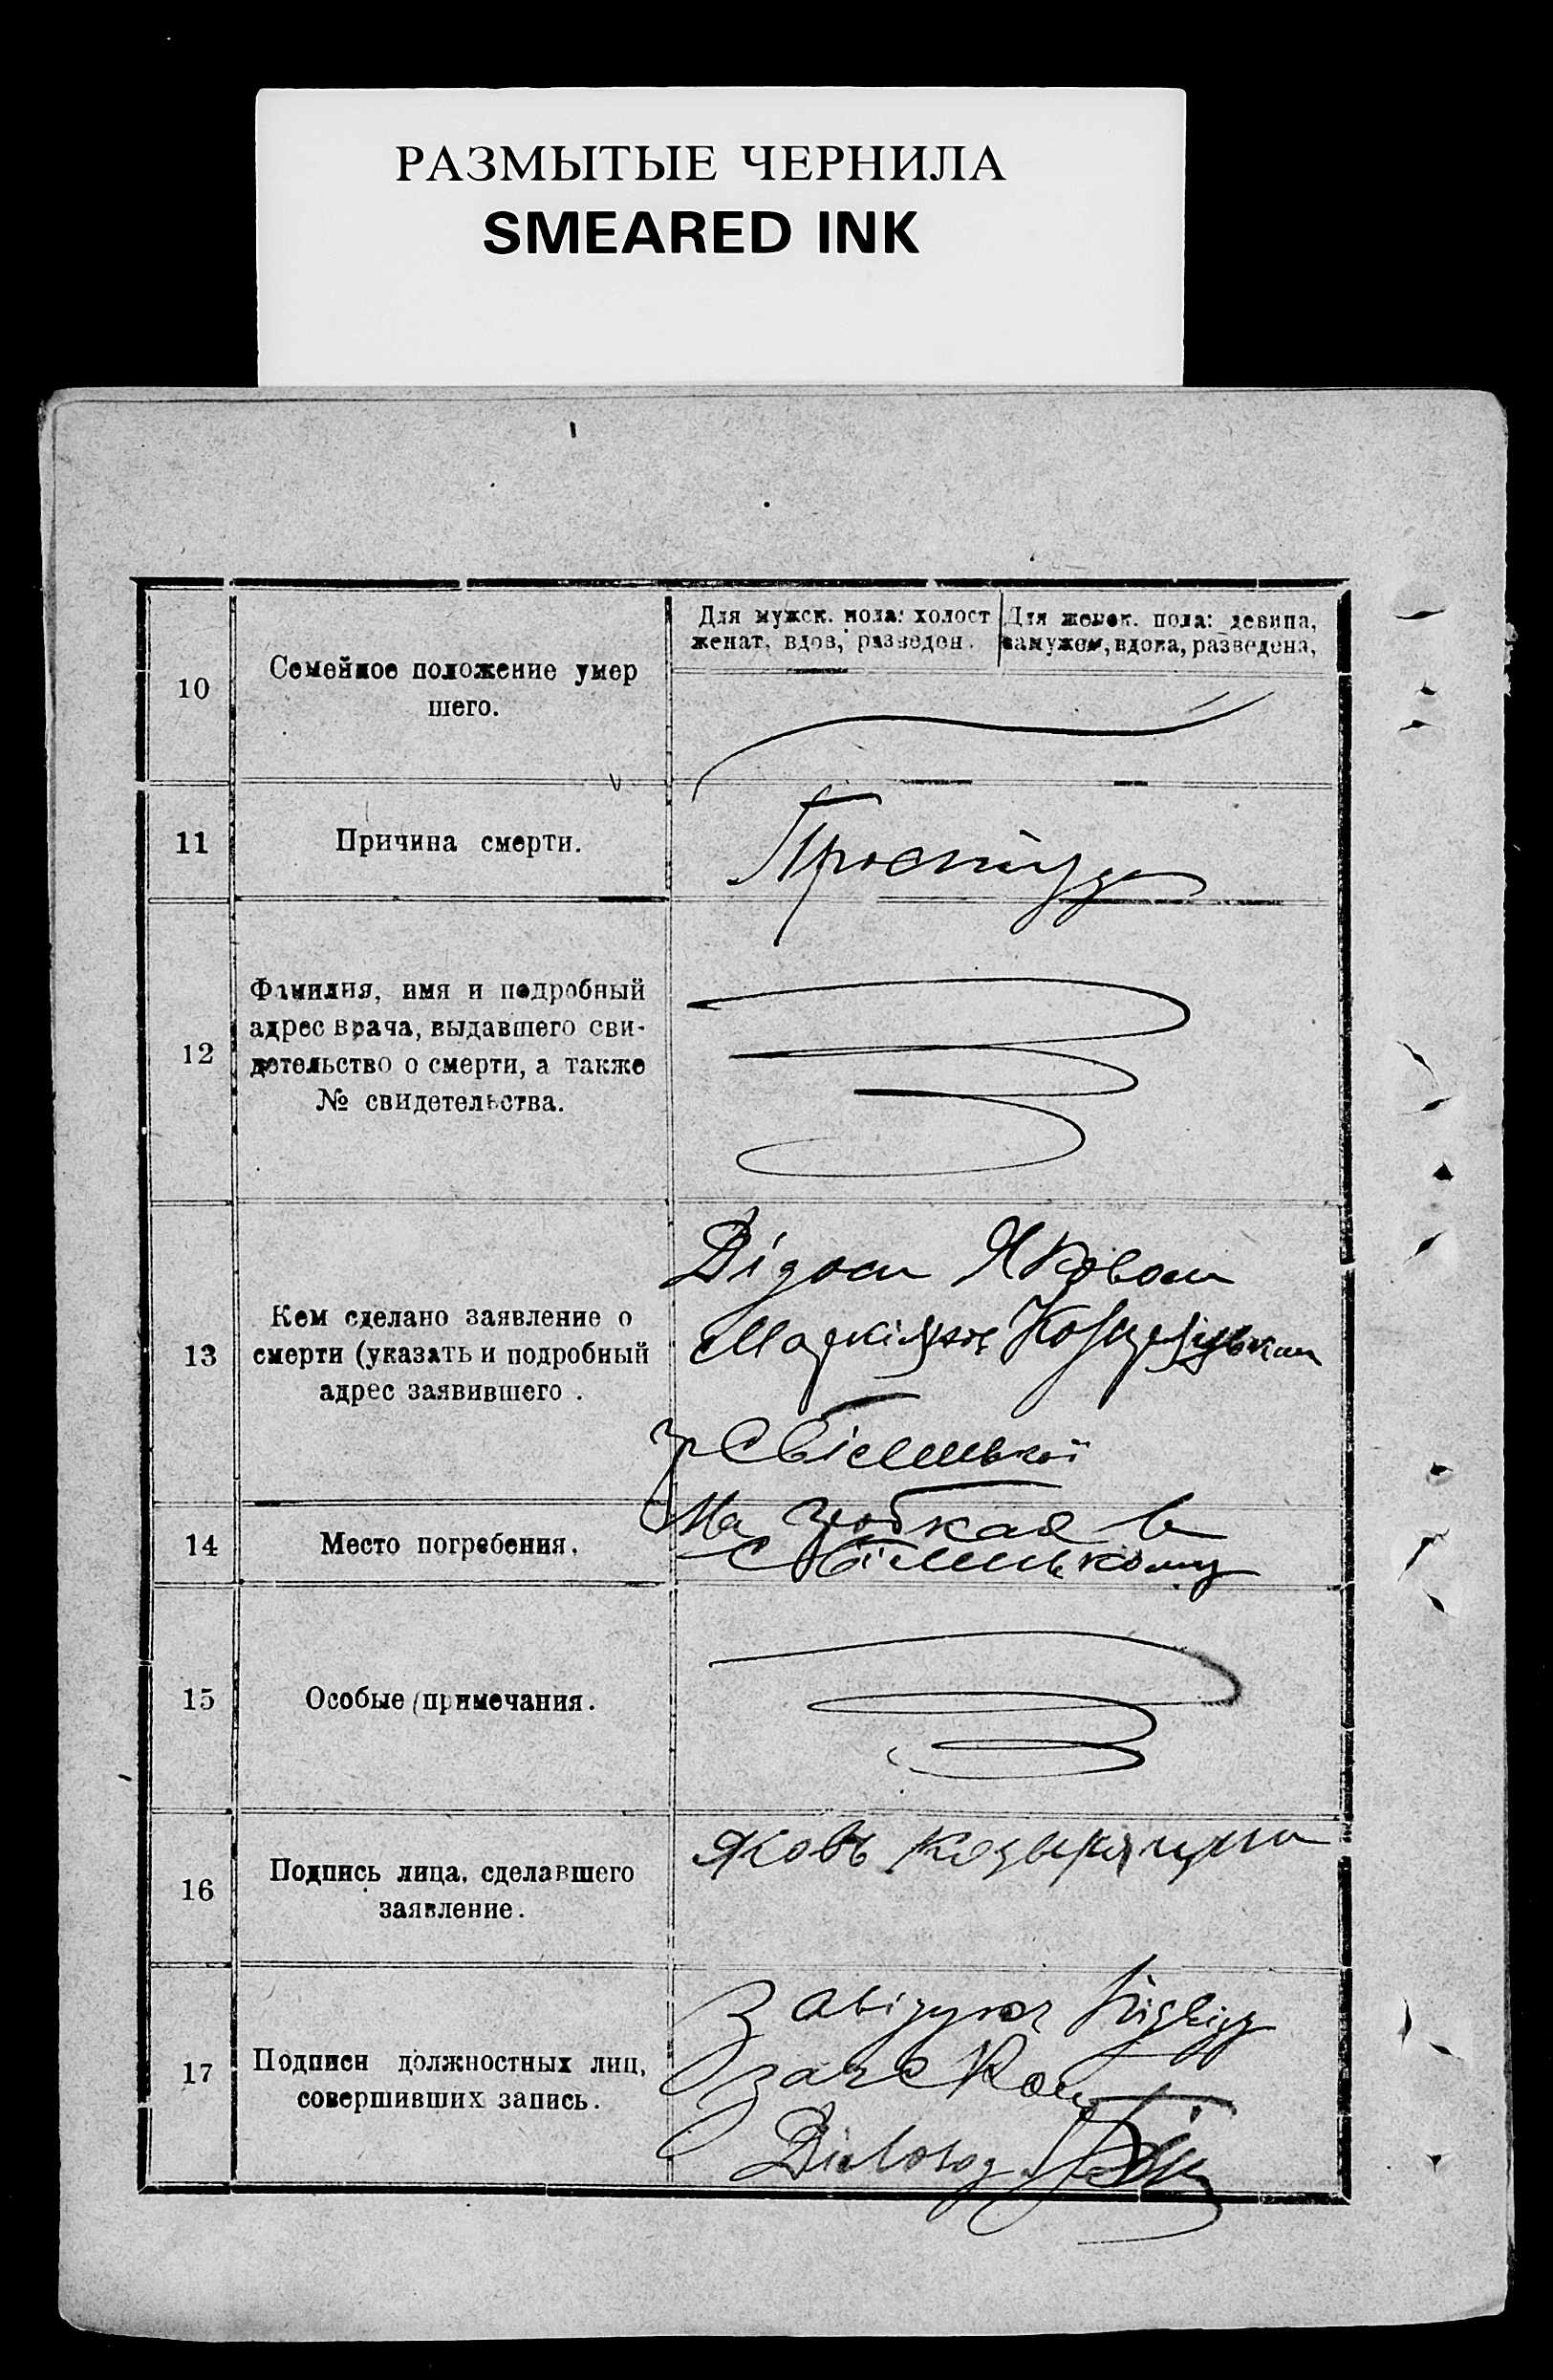 РАЗМЫТЫЕ ЧЕРНИЛА
SMEARED INK
10
Семейное положение умер
шего.
Для мужск. пола: холост
женат, вдов, разведен.
Для женск. пола: девица,
замужем, вдова, разведена,
11
Причина смерти.
Простуда
12
Фамилия, имя и подробный
адрес врача, выдавшего сви-
детельство о смерти, а также
№ свидетельства.
13
Кем сделано заявление о
смерти (указать и подробный
адрес заявившего.
Дідом Яковом
14
Место погребения.
На в
15
Особые примечания.
16
Подпись лица, сделавшего
заявление.
Яковъ
17
Подписи должностных лиц,
совершивших запись.
Завідуюч
Діловод